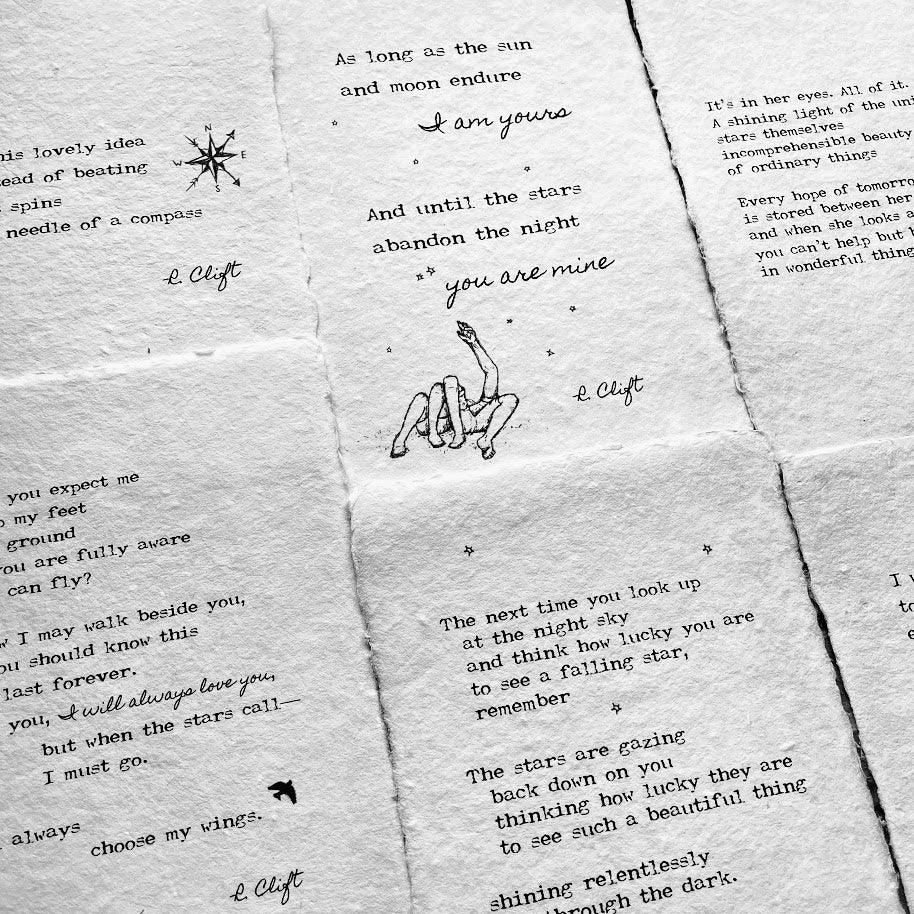 his lovely idea
ead of beating
spins
needle of a compass
N
W E
S
R. Clift
As long as the sun
and moon endure
I am yours
And until the stars
abandon the night
you are mine
R. Clift
It's in her eyes. All of it.
A shining light of the uni
stars themselves
incomprehensible beauty
of ordinary things
Every hope of tomorro
is stored between her
and when she looks a
you can't help but h
in wonderful thing
you expect me
o my feet
ground
you are fully aware
can fly?
w I may walk beside you,
ou should know this
last forever.
you, I will always love you,
but when the stars call—
I must go.
always
choose my wings.
R. Clift
The next time you look up
at the night sky
and think how lucky you are
to see a falling star,
remember
The stars are gazing
back down on you
thinking how lucky they are
to see such a beautiful thing
shining relentlessly
through the dark.
I w
to
e